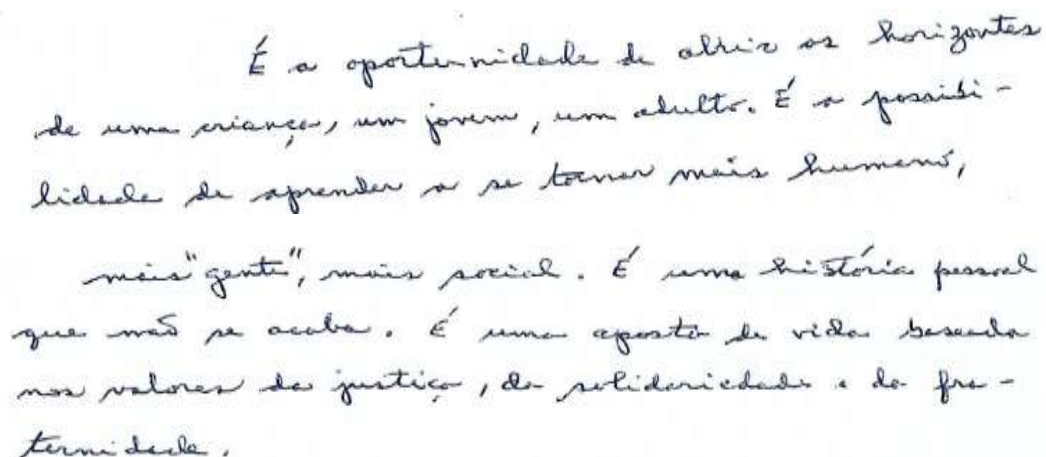 É a oportunidade de abrir os horizontes
de uma criança, um jovem, um adulto. É a possibi-
lidade de aprender a se tornar mais humano,
mais "gente", mais social. É uma história pessoal
que não se acaba. É uma aposta de vida baseada
nos valores da justiça, da solidariedade e da fra-
ternidade.